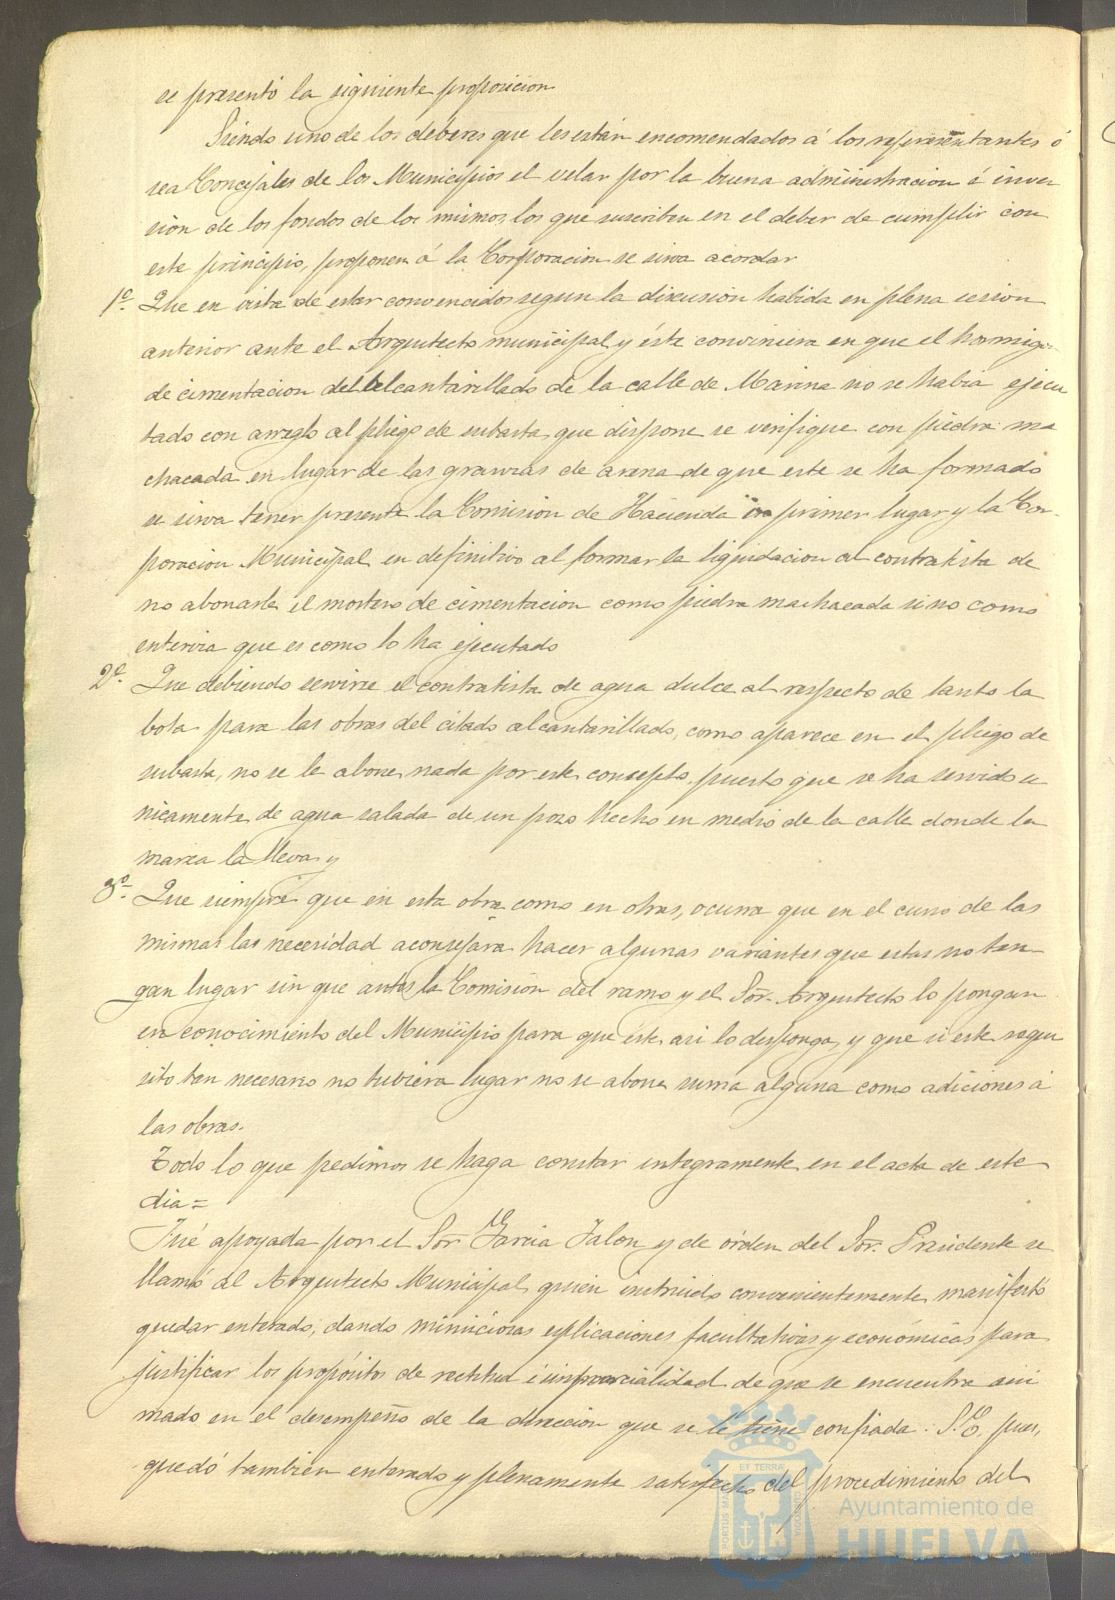 se presentó la siguiente proposicion
Siendo uno de los deberes que les están encomendados á los representantes ó
sea Concejales de los Municipios el velar por la buena administracion é inver
sion de los fondos de los mismos, los que suscriben en el deber de cumplir con
este principio, proponen á la Corporacion se sirva acordar
1º Que en vista de estar convencidos segun la discusión habida en plena sesion
anterior ante el Arquitecto municipal y éste conviniera en que el hormigon
de cimentacion del alcantarillado de la calle de Marina no se habia ejecu
tado con arreglo al pliego de subasta que dispone se verifique con piedra ma
chacada en lugar de las granzas de arena de que este se ha formado
se sirva tener presente la Comision de Hacienda en primer lugar y la Cor-
poracion Municipal en definitivo al formar la liquidacion al contratista de
no abonarle el mortero de cimentacion como piedra machacada sino como
que es como lo ha ejecutado
2º Que debiendo servirse el contratista de agua dulce al respecto de tanto la
bota para las obras del citado alcantarillado, como aparece en el pliego de
subasta, no se le abone nada por este concepto, puesto que se ha servido u
nicamente de agua salada de un pozo hecho en medio de la calle donde la
marea la lleva y
3º Que siempre que en esta obra como en otras, ocurra que en el curso de las
mismas las necesidad aconsejara hacer algunas variantes que estas no ten
gan lugar sin que antes la Comisión del ramo y el Sor. Arquitecto lo pongan
en conocimiento del Municipio para que éste asi lo disponga, y que si este requi
sito tan necesario no tubiera lugar no se abone suma alguna como adiciones á
las obras.
Todo lo que pedimos se haga constar integramente en el acta de este
dia =
Fué apoyada por el Sor Garcia Jalon y de órden del Sor. Presidente se
llamó al Arquitecto Municipal, quien instruido convenientemente, manifestó
quedar enterado, dando minuciosas esplicaciones facultativas y económicas para
justificar los propósitos de rectitud é imparcialidad de que se encuentra ani
mado en el desempeño de la direccion que se le tiene confiada. S.E. pues,
quedó tambien enterado y plenamente satisfecho del procedimiento del
Ayuntamiento de
HUELVA